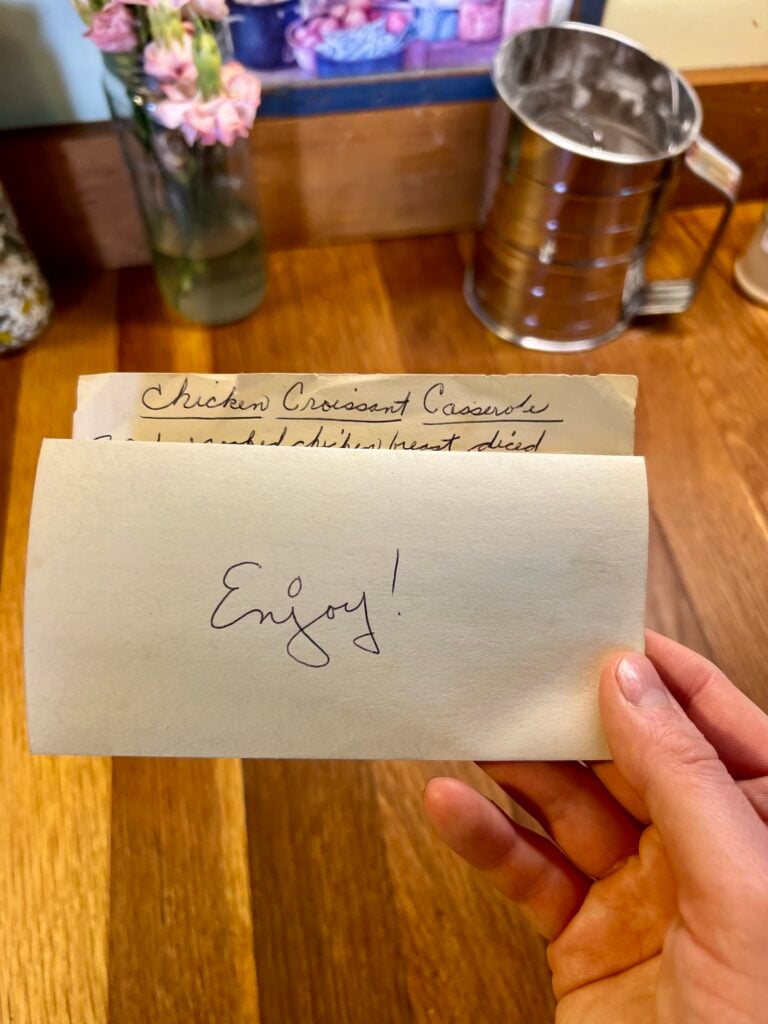 Chicken Croissant Casserole
cooked chicken breast diced
Enjoy!